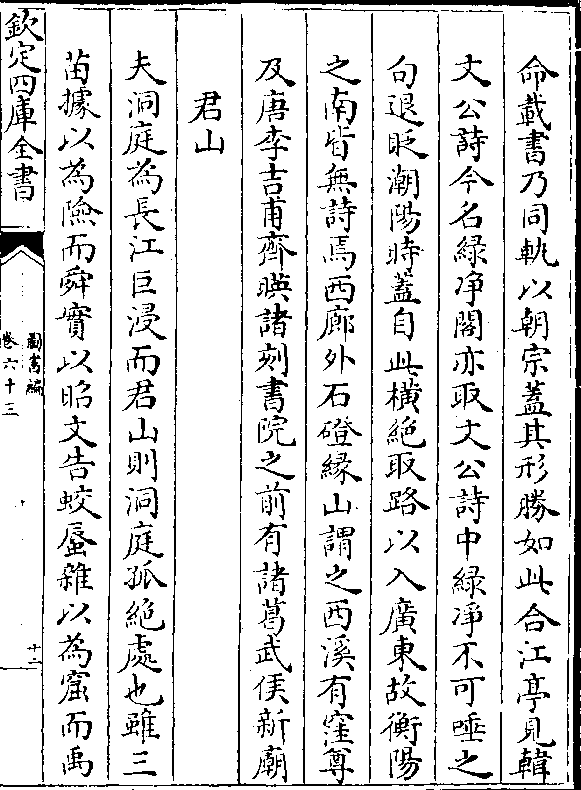 命載書乃同軌以朝宗蓋其形勝如此合江亭見韓
文公詩今名緑净閣亦取文公詩中緑凈不可唾之
句退貶潮陽時蓋自此橫絶取路以入廣東故衡陽
之南皆無詩焉西廊外石磴縁山謂之西溪有窪尊
及唐李吉甫齊暎諸刻書院之前有諸葛武侯新廟
君山
夫洞庭為長江巨浸而君山則洞庭孤絶處也雖三
苗據以為險而舜實以昭文告蛟蜃雜以為窟而禹
欽定四庫全書
卷六十三
十二